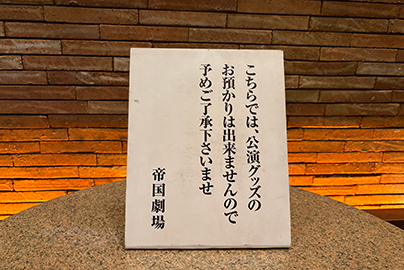 こちらでは、公演グッズの
お預かりは出来ませんので
予めご了承下さいませ
帝国劇場